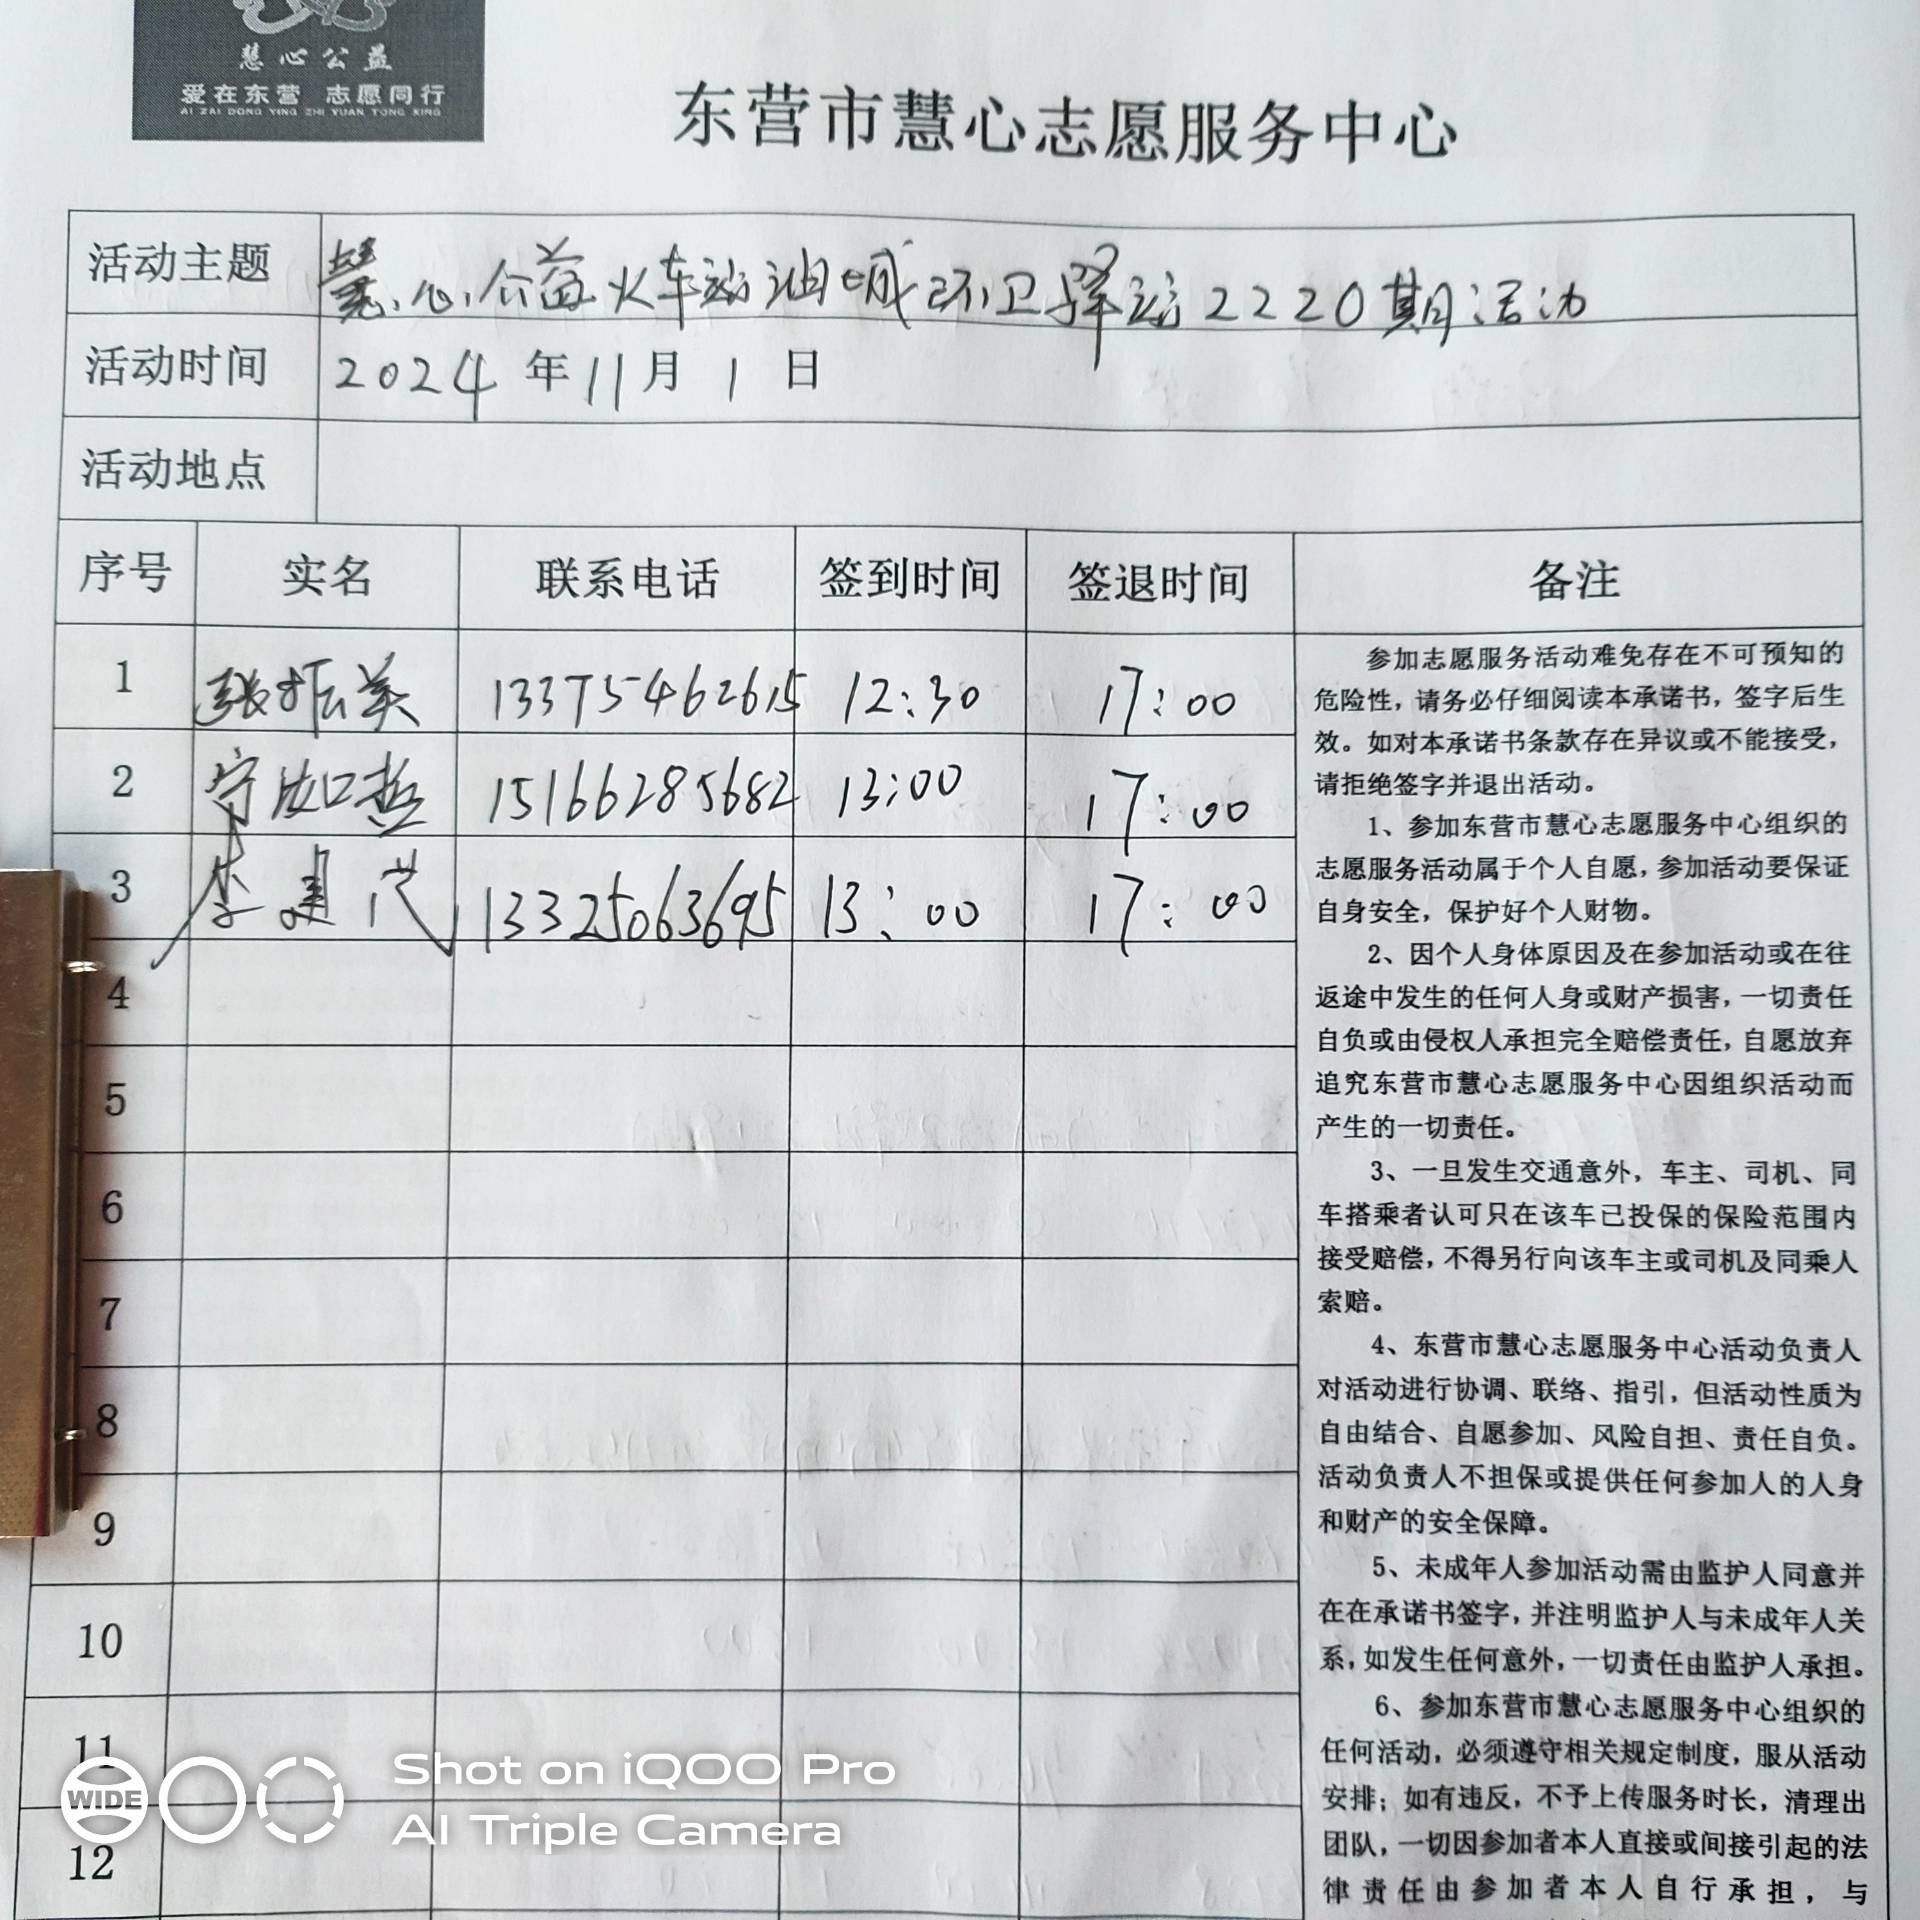 慧心公益
爱在东营 志愿同行
AI ZAI DONG YING ZHI YUAN TONG XING
东营市慧心志愿服务中心
活动主题 慧心公益火车站油城环卫驿站2220期活动
活动时间 2024年11月1日
活动地点
序号 实名 联系电话 签到时间 签退时间 备注
1 张振美 13375462615 12:30 17:00
2 宁如哲 15166285682 13:00 17:00
3 李建 13325063695 13:00 17:00
4
5
6
7
8
9
10
11
12
参加志愿服务活动难免存在不可预知的
危险性，请务必仔细阅读本承诺书，签字后生
效。如对本承诺书条款存在异议或不能接受，
请拒绝签字并退出活动。
1、参加东营市慧心志愿服务中心组织的
志愿服务活动属于个人自愿，参加活动要保证
自身安全，保护好个人财物。
2、因个人身体原因及在参加活动或在往
返途中发生的任何人身或财产损害，一切责任
自负或由侵权人承担完全赔偿责任，自愿放弃
追究东营市慧心志愿服务中心因组织活动而
产生的一切责任。
3、一旦发生交通意外，车主、司机、同
车搭乘者认可只在该车已投保的保险范围内
接受赔偿，不得另行向该车主或司机及同乘人
索赔。
4、东营市慧心志愿服务中心活动负责人
对活动进行协调、联络、指引，但活动性质为
自由结合、自愿参加、风险自担、责任自负。
活动负责人不担保或提供任何参加人的人身
和财产的安全保障。
5、未成年人参加活动需由监护人同意并
在在承诺书签字，并注明监护人与未成年人关
系，如发生任何意外，一切责任由监护人承担。
6、参加东营市慧心志愿服务中心组织的
任何活动，必须遵守相关规定制度，服从活动
安排；如有违反，不予上传服务时长，清理出
团队，一切因参加者本人直接或间接引起的法
律责任由参加者本人自行承担，与
WIDE
Shot on iQOO Pro
AI Triple Camera